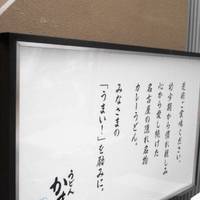 是非ご賞味ください。
幼少期から慣れ親しみ
心から愛し続けた
名古屋の隠れ名物
カレーうどん。
みなさまの
「うまい！」を励みに。
うどん